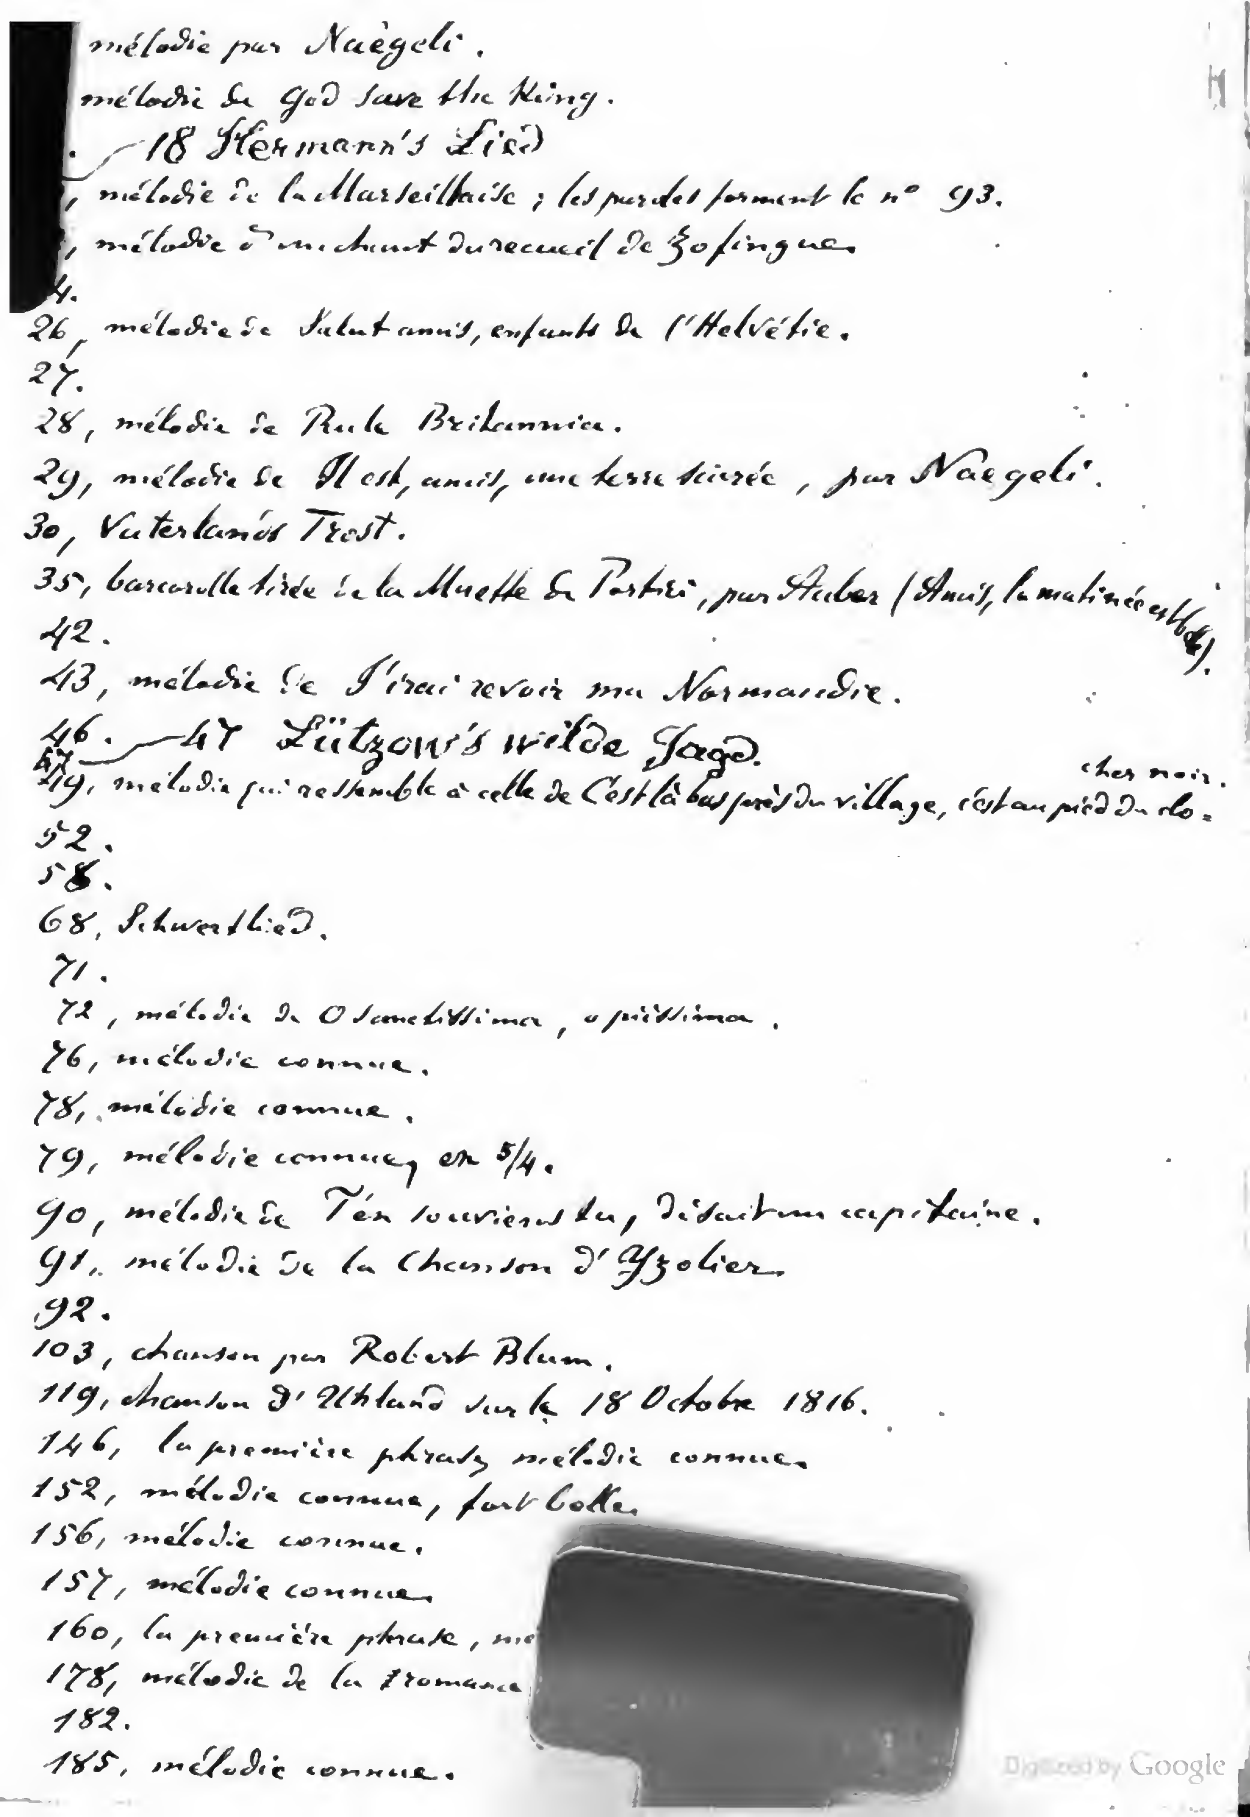 mélodie par Naègeli.
mélodie de God save the King.
. 18 Hermann's Lied
, mélodie de la Marseillaise ; les paroles forment le n° 93.
, mélodie d'un chant du recueil de Zofingue.
4.
26, mélodie de Salut amis, enfants de l'Helvétie.
27.
28, mélodie de Rule Britannia.
29, mélodie de Il est, amis, une terre sacrée, par Naegeli.
30, Vaterland's Trost.
35, barcarolle tirée de la Muette de Portici, par Auber (Amis, la matinée est belle).
42.
43, mélodie de J'irai revoir ma Normandie.
46. 47 Lützow's wilde Jagd.
49, mélodie qui ressemble à celle de C'est là bas près du village, c'est au pied du clo=
cher noir.
52.
58.
68, Schwertlied.
71.
72, mélodie de O sanctissima, o piissima.
76, mélodie connue.
78, mélodie connue.
79, mélodie connue, en 5/4.
90, mélodie de T'en souviens tu, disait un capitaine.
91, mélodie de la Chanson d'Yzolier.
92.
103, chanson par Robert Blum.
119, chanson d'Uhland sur le 18 Octobre 1816.
146, la première phrase, mélodie connue.
152, mélodie connue, fort belle.
156, mélodie connue.
157, mélodie connue.
160, la première phrase, mé
178, mélodie de la romance
182.
185, mélodie connue.
Digitized by Google